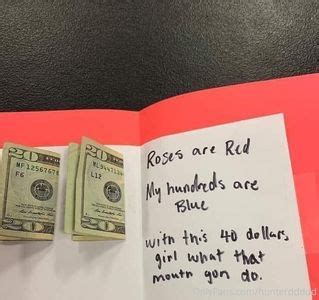 Roses are Red
My hundreds are
Blue
with this 40 dollars,
girl what that
mouth gon do.
20
20
MF12567678
F6
L12
OnlyFans.com/hunterddddd